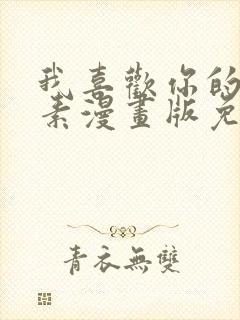 我喜歡你的
素漫畫版免
青衣無雙